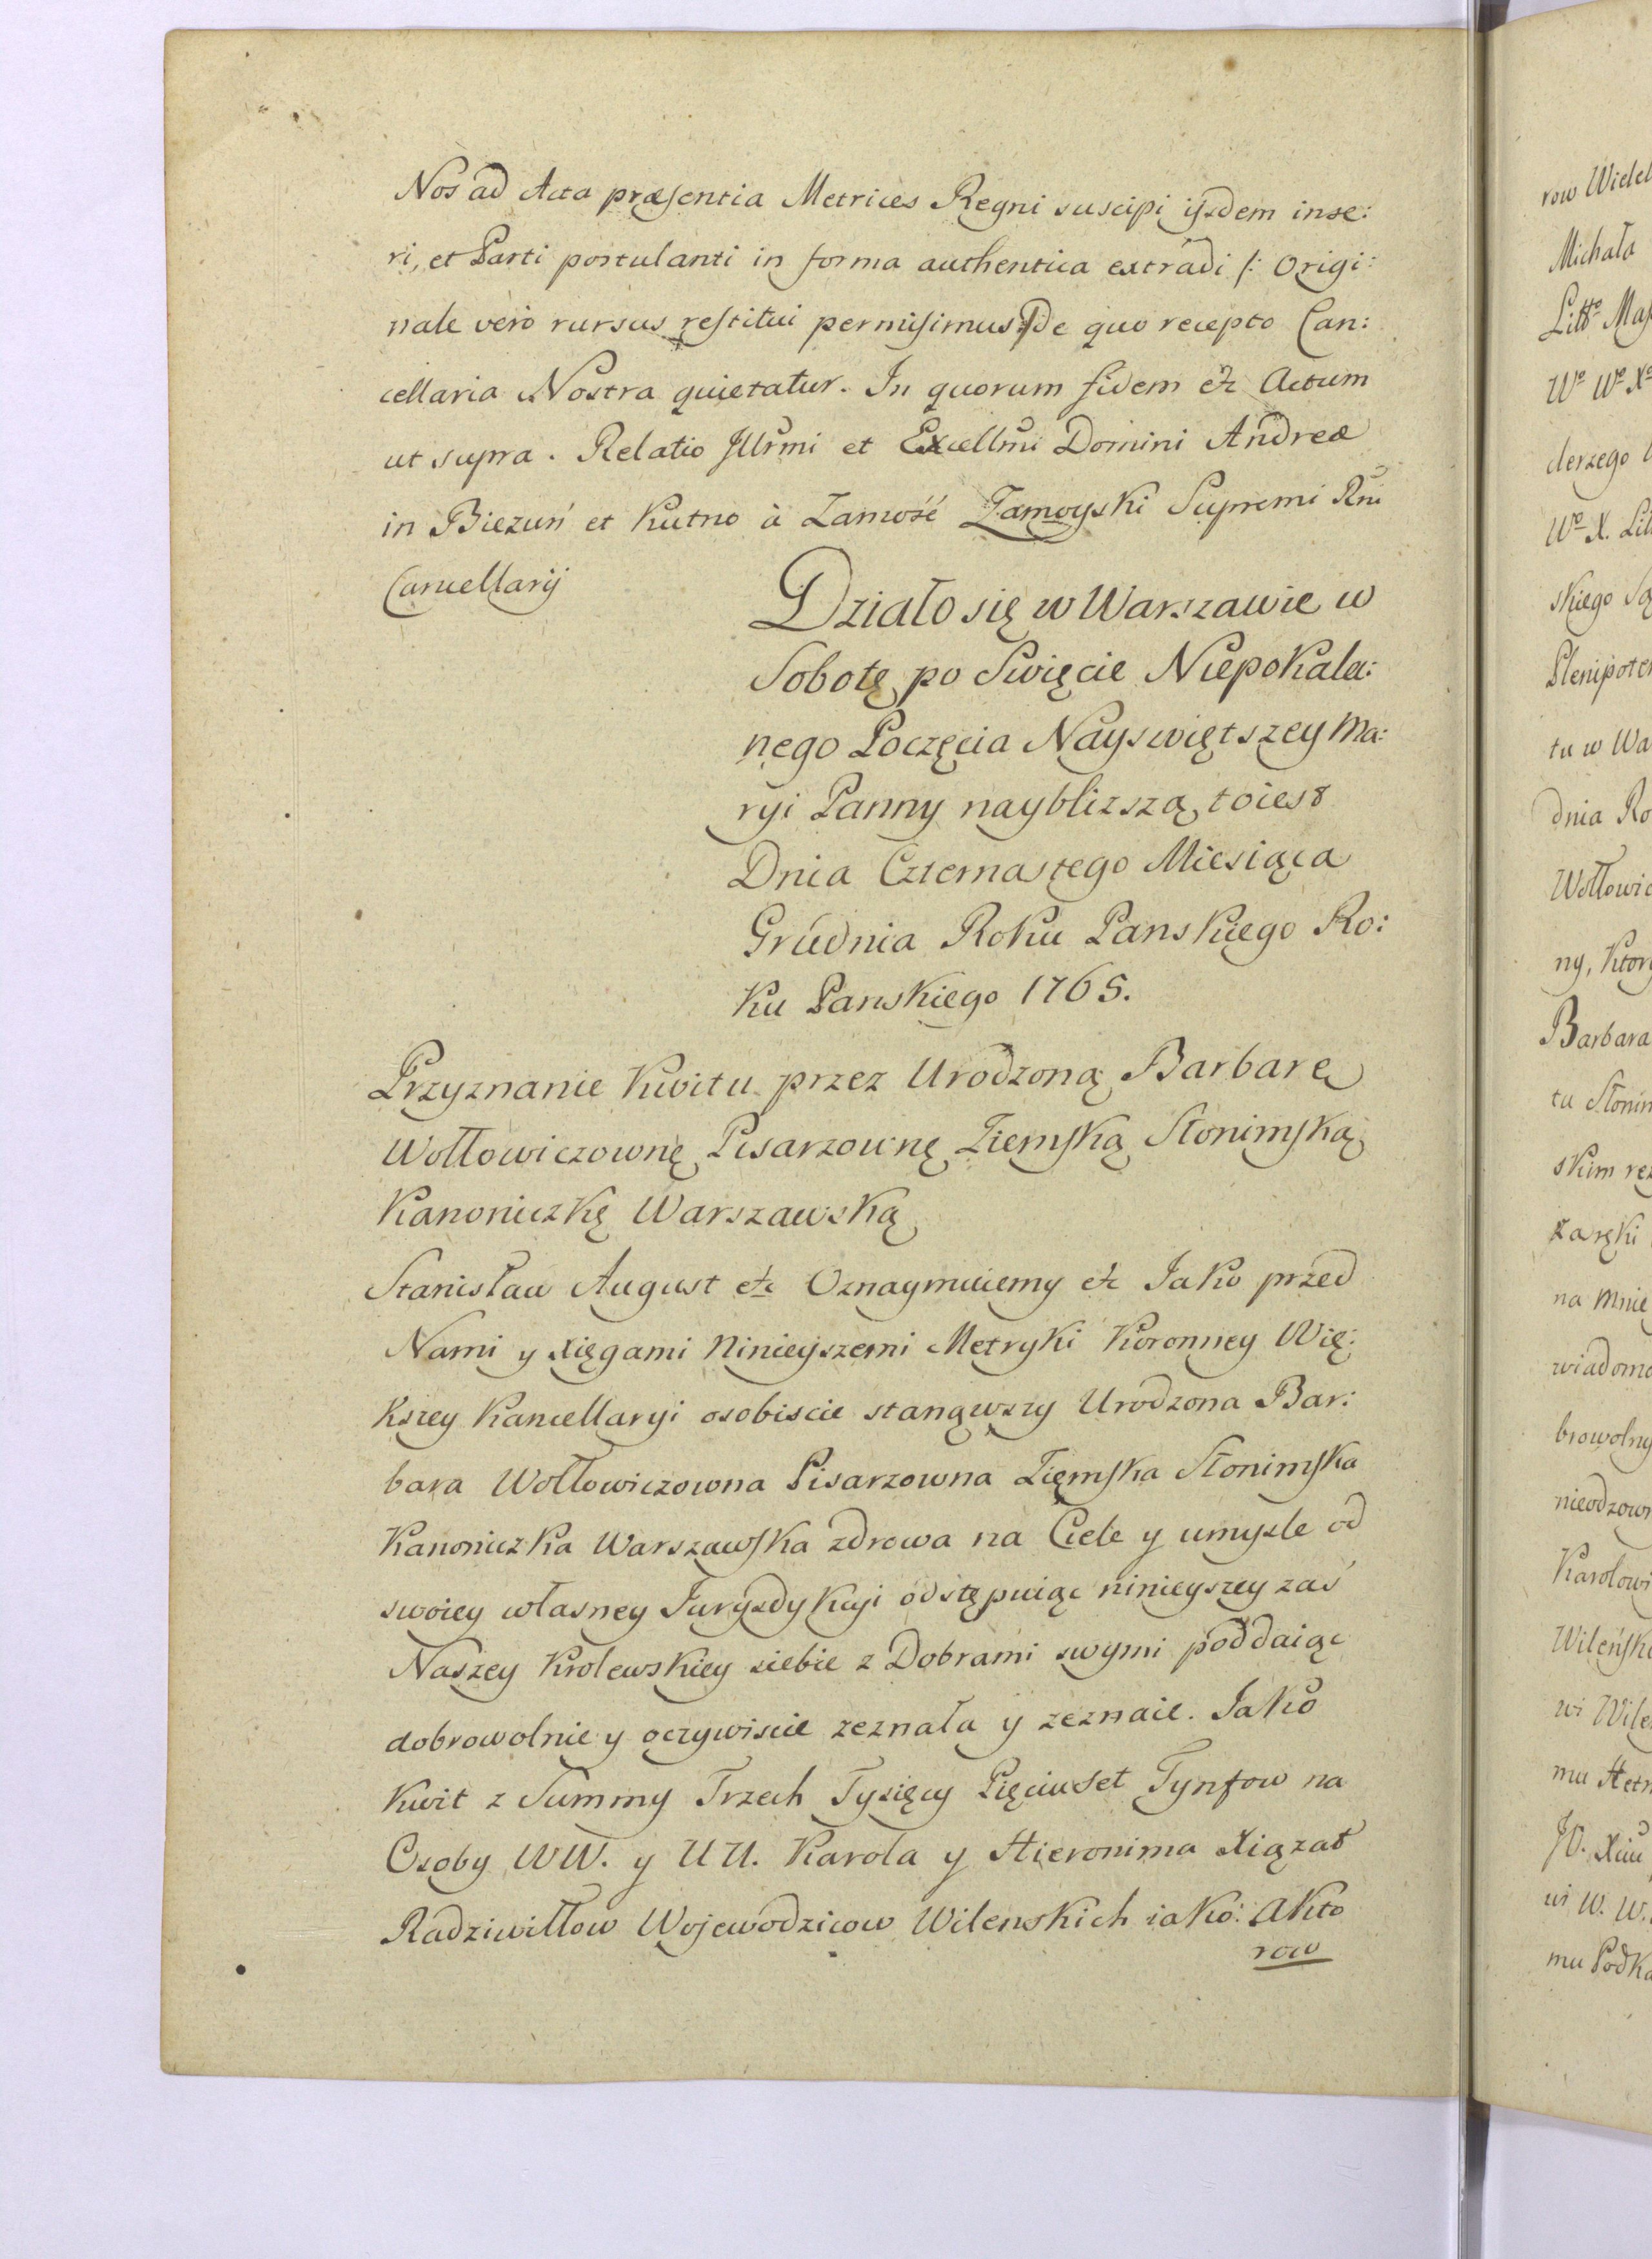 Nos ad Acta præsentia Metrices Regni suscipi ijsdem inse:
ri, et Parti postulanti in forma authentica extradi /: Origi:
nale vero rursus restitui permisimus :/ de quo recepto Can:
cellaria Nostra quietatur. In quorum fidem etc Actum
ut supra. Relatio Illrmi et Excellmi Domini Andreæ
in Biezuń et Kutno à Zamość Zamoyski Supremi Rni
Cancellarij
Działo się w Warszawie w
Sobotę po Swięcie Niepokala:
nego Poczęcia Nayswiętszey Ma:
ryi Panny naybliższą, toiest
Dnia Czternastego Miesiąca
Grudnia Roku Panskiego Ro:
ku Panskiego 1765.
Przyznanie Kwitu przez Urodzoną Barbarę
Wołłowiczownę Pisarzownę Ziemską Słonimską
Kanoniczkę Warszawską
Stanisław August etc Oznaymuiemy etc Jako przed
Nami y xięgami Ninieyszemi Metryki Koronney Wię:
kszey Kancellaryi osobiscie stanąwszy Urodzona Bar:
bara Wołłowiczowna Pisarzowna Ziemska Słonimska
Kanoniczka Warszawska zdrowa na Ciele y umysle od
swoiey własney Juryzdykcyi odstępuiąc ninieyszey zaś
Naszey Krolewskiey siebie z Dobrami swymi poddaiąc
dobrowolnie y oczywiscie zeznała y zeznaie. Jako
Kwit z Summy Trzech Tysięcy Pięciuset Tynfow na
Osoby WW. y UU. Karola y Hieronima Xiążat
Radziwiłłow Wojewodzicow Wilenskich iako: Akto
row
row Wielel
Michała
Litto Mas
Wo Wo Xo
derzego
Wo X. Lit
skiego Są
Plenipoten
tu w Wa
dnia Ro
Wołłowic
ny, Ktor
Barbara
tu Słonim
skim rę
za ręki
na Mnie
wiadomo
browolny
nieodzown
Karolowi
Wileńsk
wi Wile
mu Hetm
JO. Xciu
wi W. W.
mu Podka